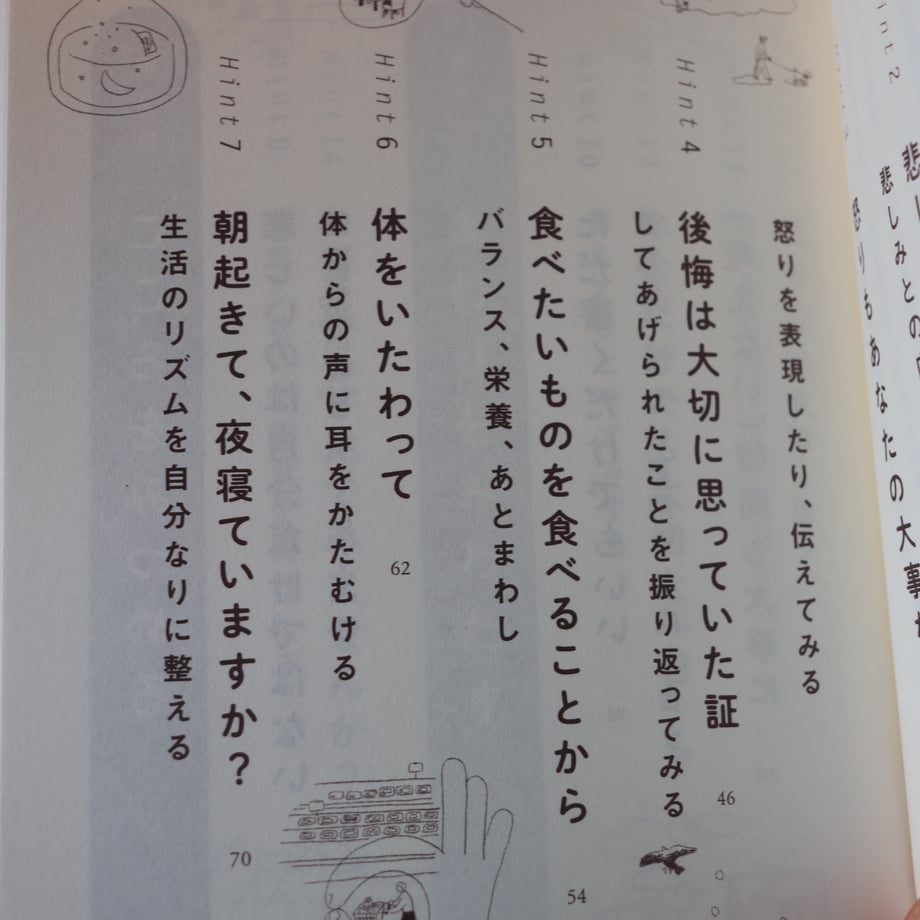 悲しみとの
怒りもあなたの大事
怒りを表現したり、伝えてみる
Hint 4
後悔は大切に思っていた証
46
してあげられたことを振り返ってみる
Hint 5
食べたいものを食べることから
54
バランス、栄養、あとまわし
Hint 6
体をいたわって
62
体からの声に耳をかたむける
Hint 7
朝起きて、夜寝ていますか？
70
生活のリズムを自分なりに整える